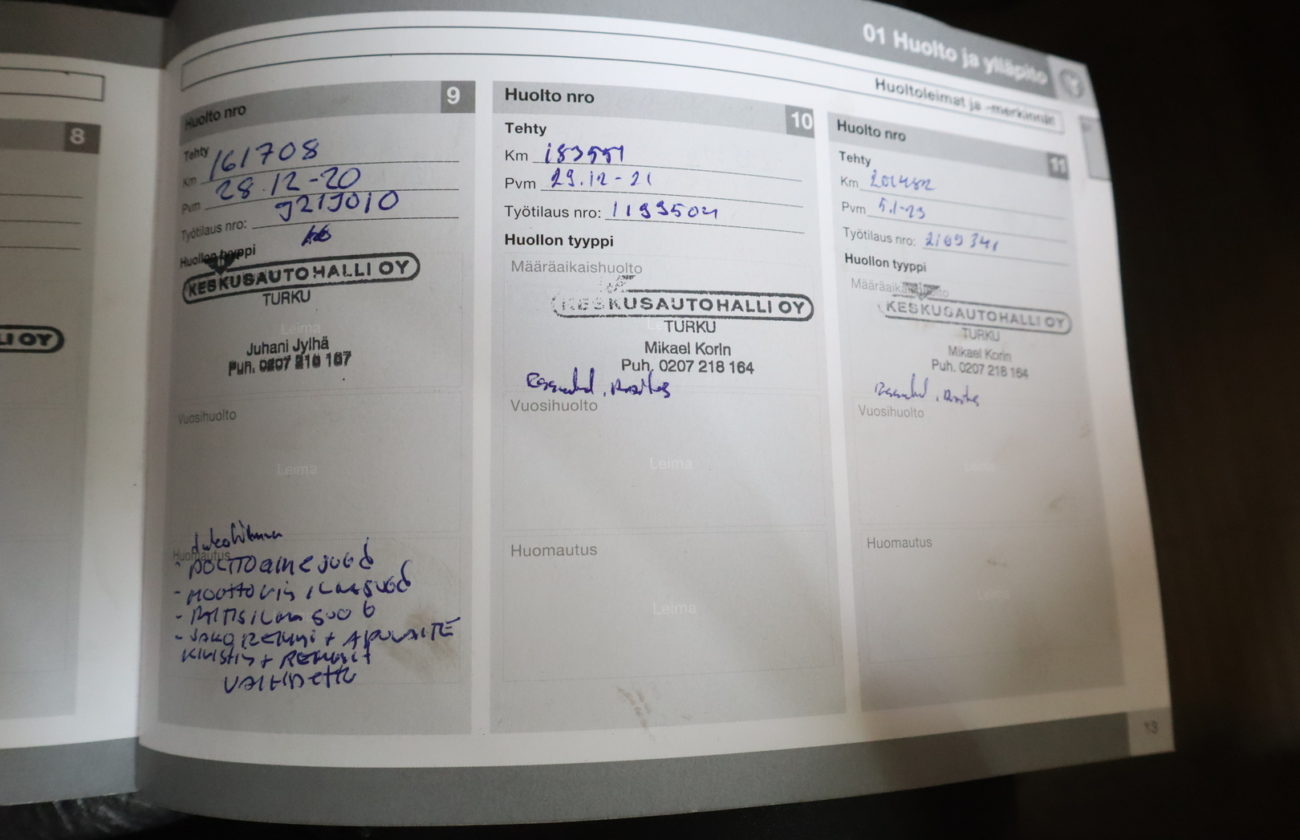 01 Huolto ja ylläpito
Huoltoleimat ja -merkinnät
8
LI OY
Huolto nro 9
Tehty
Km 161708
Pvm 28.12-20
Työtilaus nro: 9219010
Huollon tyyppi
KESKUSAUTOHALLI OY
TURKU
Leima
Juhani Jylhä
Puh. 0207 218 167
Vuosihuolto
Leima
Huomautus
- POLTTOAINESUOD
- MOOTTORIN ILMASUOD
- RAITISILMASUOD
- JAKOREMMI + APULAITE
KIRISTIN + REMMIT
VAIHDETTU
Huolto nro 10
Tehty
Km 183551
Pvm 29.12-21
Työtilaus nro: 1193504
Huollon tyyppi
Määräaikaishuolto
KESKUSAUTOHALLI OY
TURKU
Mikael Korin
Puh. 0207 218 164
Vuosihuolto
Leima
Huomautus
Leima
Huolto nro 11
Tehty
Km 201482
Pvm 5.1-23
Työtilaus nro: 2109341
Huollon tyyppi
Määräaikaishuolto
KESKUSAUTOHALLI OY
TURKU
Mikael Korin
Puh. 0207 218 164
Vuosihuolto
Leima
Huomautus
Leima
13